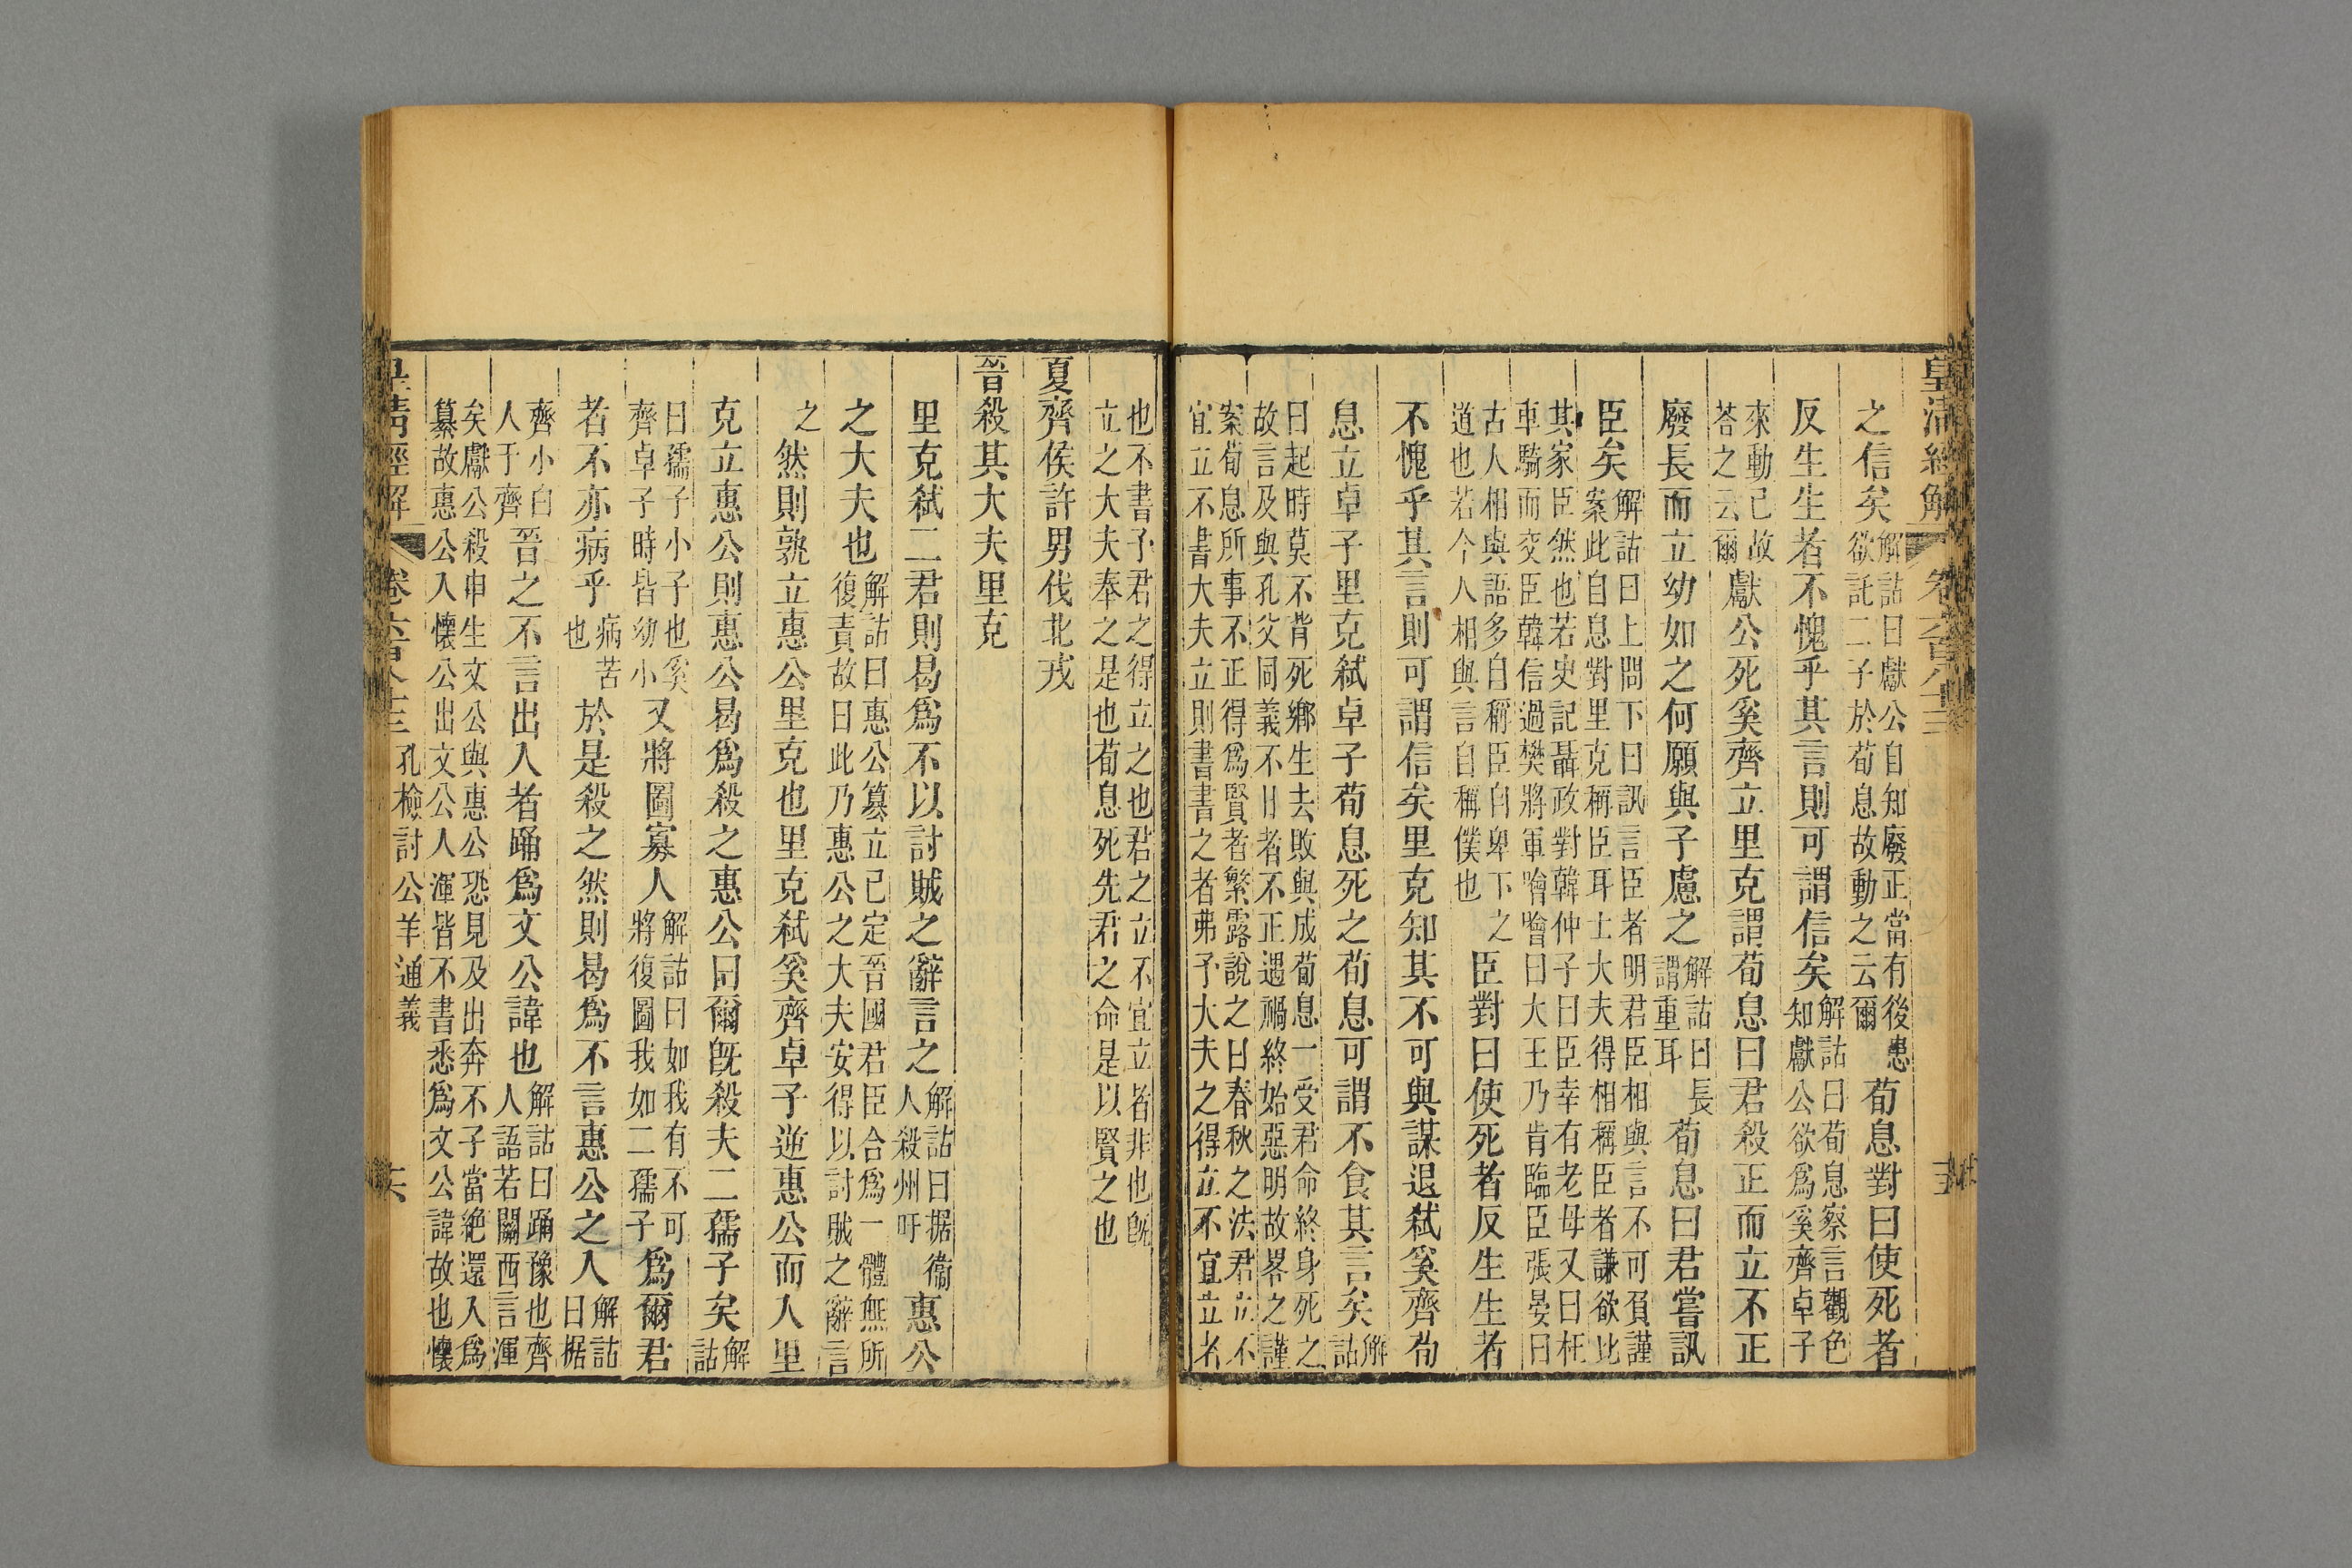 皇清經解 卷六百八十三
之信矣解詁曰獻公自知廢正當有後患欲託二子於荀息故動之云爾荀息對曰使死者
反生生者不愧乎其言則可謂信矣解詁曰荀息察言觀色知獻公欲為奚齊卓子
來動己故荅之云爾獻公死奚齊立里克謂荀息曰君殺正而立不正
廢長而立幼如之何願與子慮之解詁曰長謂重耳荀息曰君嘗訊
臣矣解詁曰上問下曰訊言臣者明君臣相與言不可負謹案此自息對里克稱臣耳士大夫得相稱臣者謙欲比
其家臣然也若史記聶政對韓仲子曰臣幸有老母又曰枉車騎而交臣韓信過樊將軍噲噲曰大王乃肯臨臣張晏曰
古人相與語多自稱臣自卑下之道也若今人相與言自稱僕也臣對曰使死者反生生者
不愧乎其言則可謂信矣里克知其不可與謀退弒奚齊荀
息立卓子里克弒卓子荀息死之荀息可謂不食其言矣解詁
曰起時莫不背死鄉生去敗與成荀息一受君命終身死之故言及與孔父同義不日者不正遇禍終始惡明故畧之謹
案荀息所事不正得為賢者繁露說之曰春秋之法君立不宜立不書大夫立則書書之者弗予大夫之得立不宜立者
也不書予君之得立之也君之立不宜立者非也旣立之大夫奉之是也荀息死先君之命是以賢之也
夏齊侯許男伐北戎
晉殺其大夫里克
里克弒二君則曷為不以討賊之辭言之解詁曰据衞人殺州吁惠公
之大夫也解詁曰惠公篡立已定晉國君臣合為一體無所復責故曰此乃惠公之大夫安得以討賊之辭言
之然則孰立惠公里克也里克弒奚齊卓子逆惠公而入里
克立惠公則惠公曷為殺之惠公曰爾旣殺夫二孺子矣解詁
曰孺子小子也奚齊卓子時皆幼小又將圖寡人解詁曰如我有不可將復圖我如二孺子為爾君
者不亦病乎病苦也於是殺之然則曷為不言惠公之入解詁曰据
齊小白入于齊晉之不言出入者踊為文公諱也解詁曰踊豫也齊人語若關西言渾
矣獻公殺申生文公與惠公恐見及出奔不子當絕還入為篡故惠公入懷公出文公入渾皆不書悉為文公諱故也懷
皇清經解 卷六百八十三 孔檢討公羊通義 六